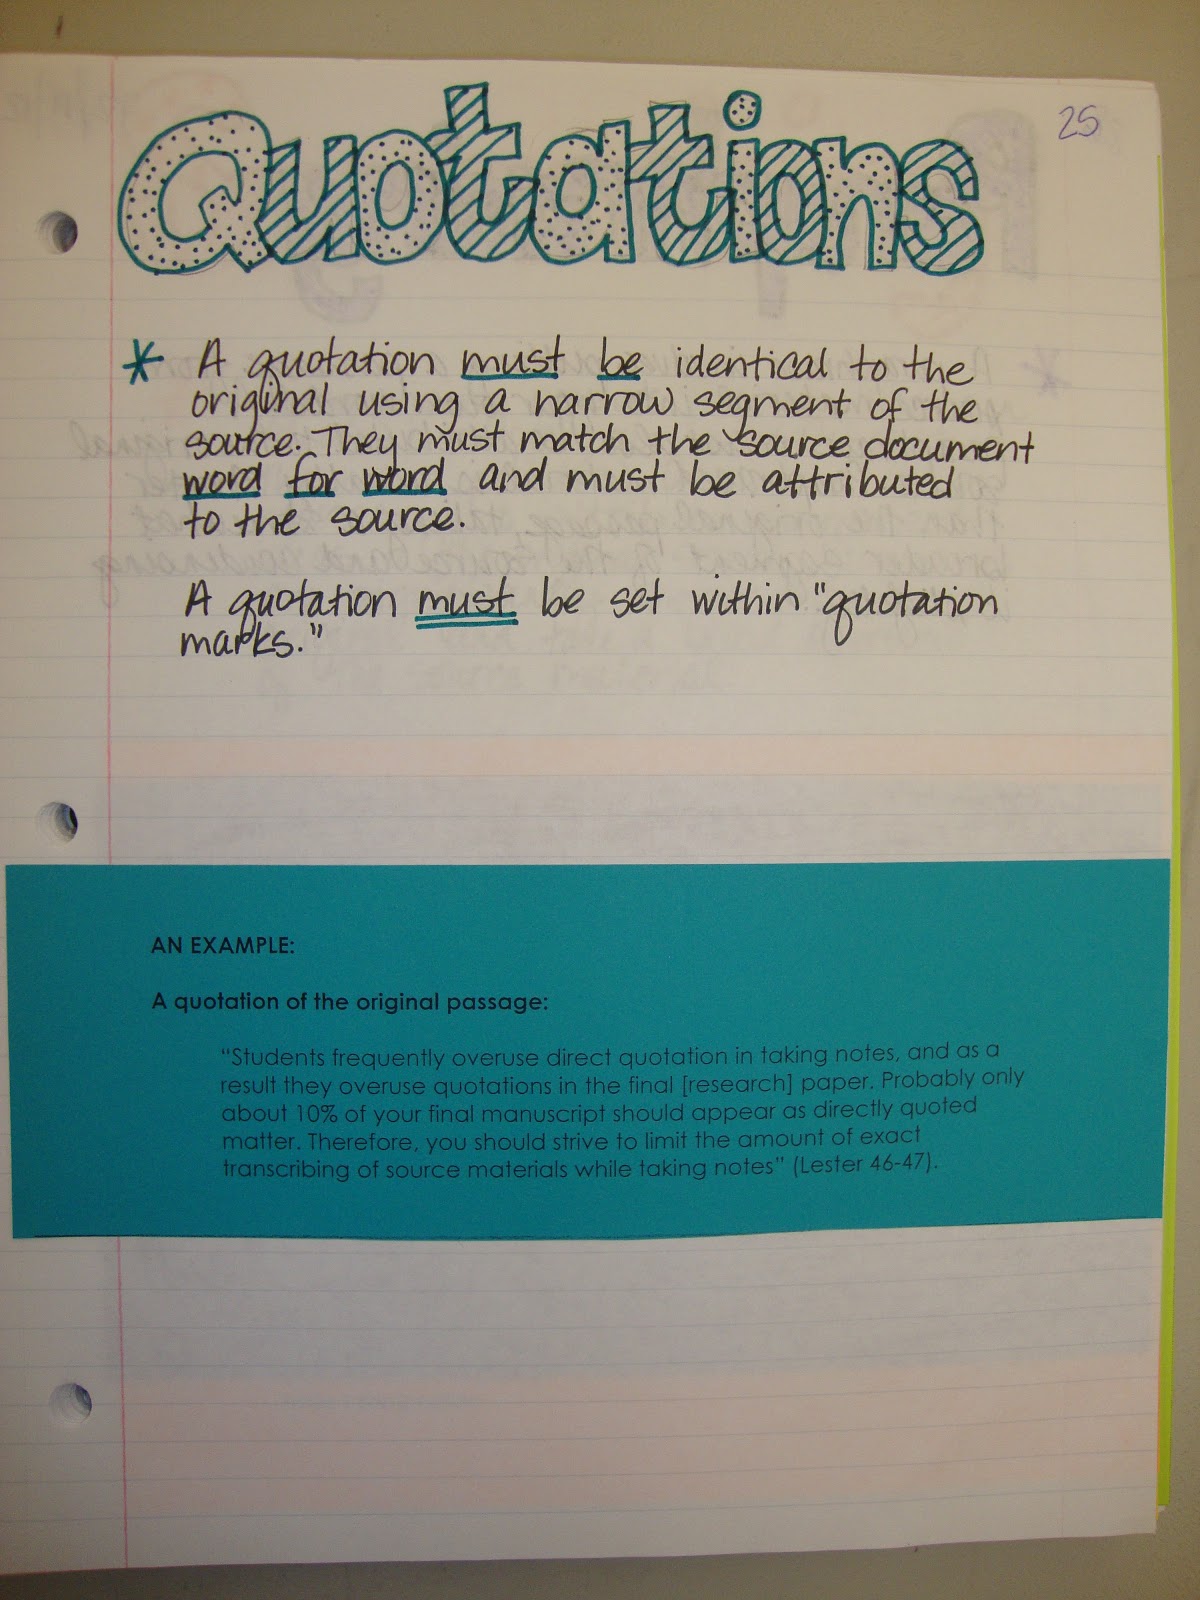 Quotations
25
* A quotation must be identical to the
original using a narrow segment of the
source. They must match the source document
word for word and must be attributed
to the source.
A quotation must be set within "quotation
marks."
AN EXAMPLE:
A quotation of the original passage:
“Students frequently overuse direct quotation in taking notes, and as a
result they overuse quotations in the final [research] paper. Probably only
about 10% of your final manuscript should appear as directly quoted
matter. Therefore, you should strive to limit the amount of exact
transcribing of source materials while taking notes” (Lester 46-47).